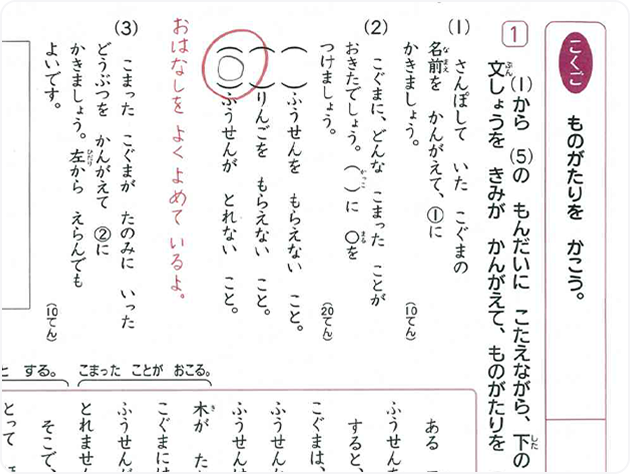 こくご
ものがたりを かこう。
1
(1)から (5)の もんだいに こたえながら、下の
文しょうを きみが かんがえて、ものがたりを
(1) さんぽして いた こぐまの
名前を かんがえて、①に
かきましょう。
(10てん)
(2) こぐまに、どんな こまった ことが
おきたでしょう。( )に ○を
つけましょう。
(20てん)
( )ふうせんを もらえない こと。
( )りんごを もらえない こと。
(○)ふうせんが とれない こと。
おはなしを よく よめて いるよ。
(3) こまった こぐまが たのみに いった
どうぶつを かんがえて ②に
かきましょう。左から えらんでも
よいです。
(10てん)
こまった ことが おこる。
と する。
ある
ふうせんを
すると、
こぐまは、
ふうせん
ふうせんは
こぐまには
木が た
ふうせんが
とれません
そこで、
とって